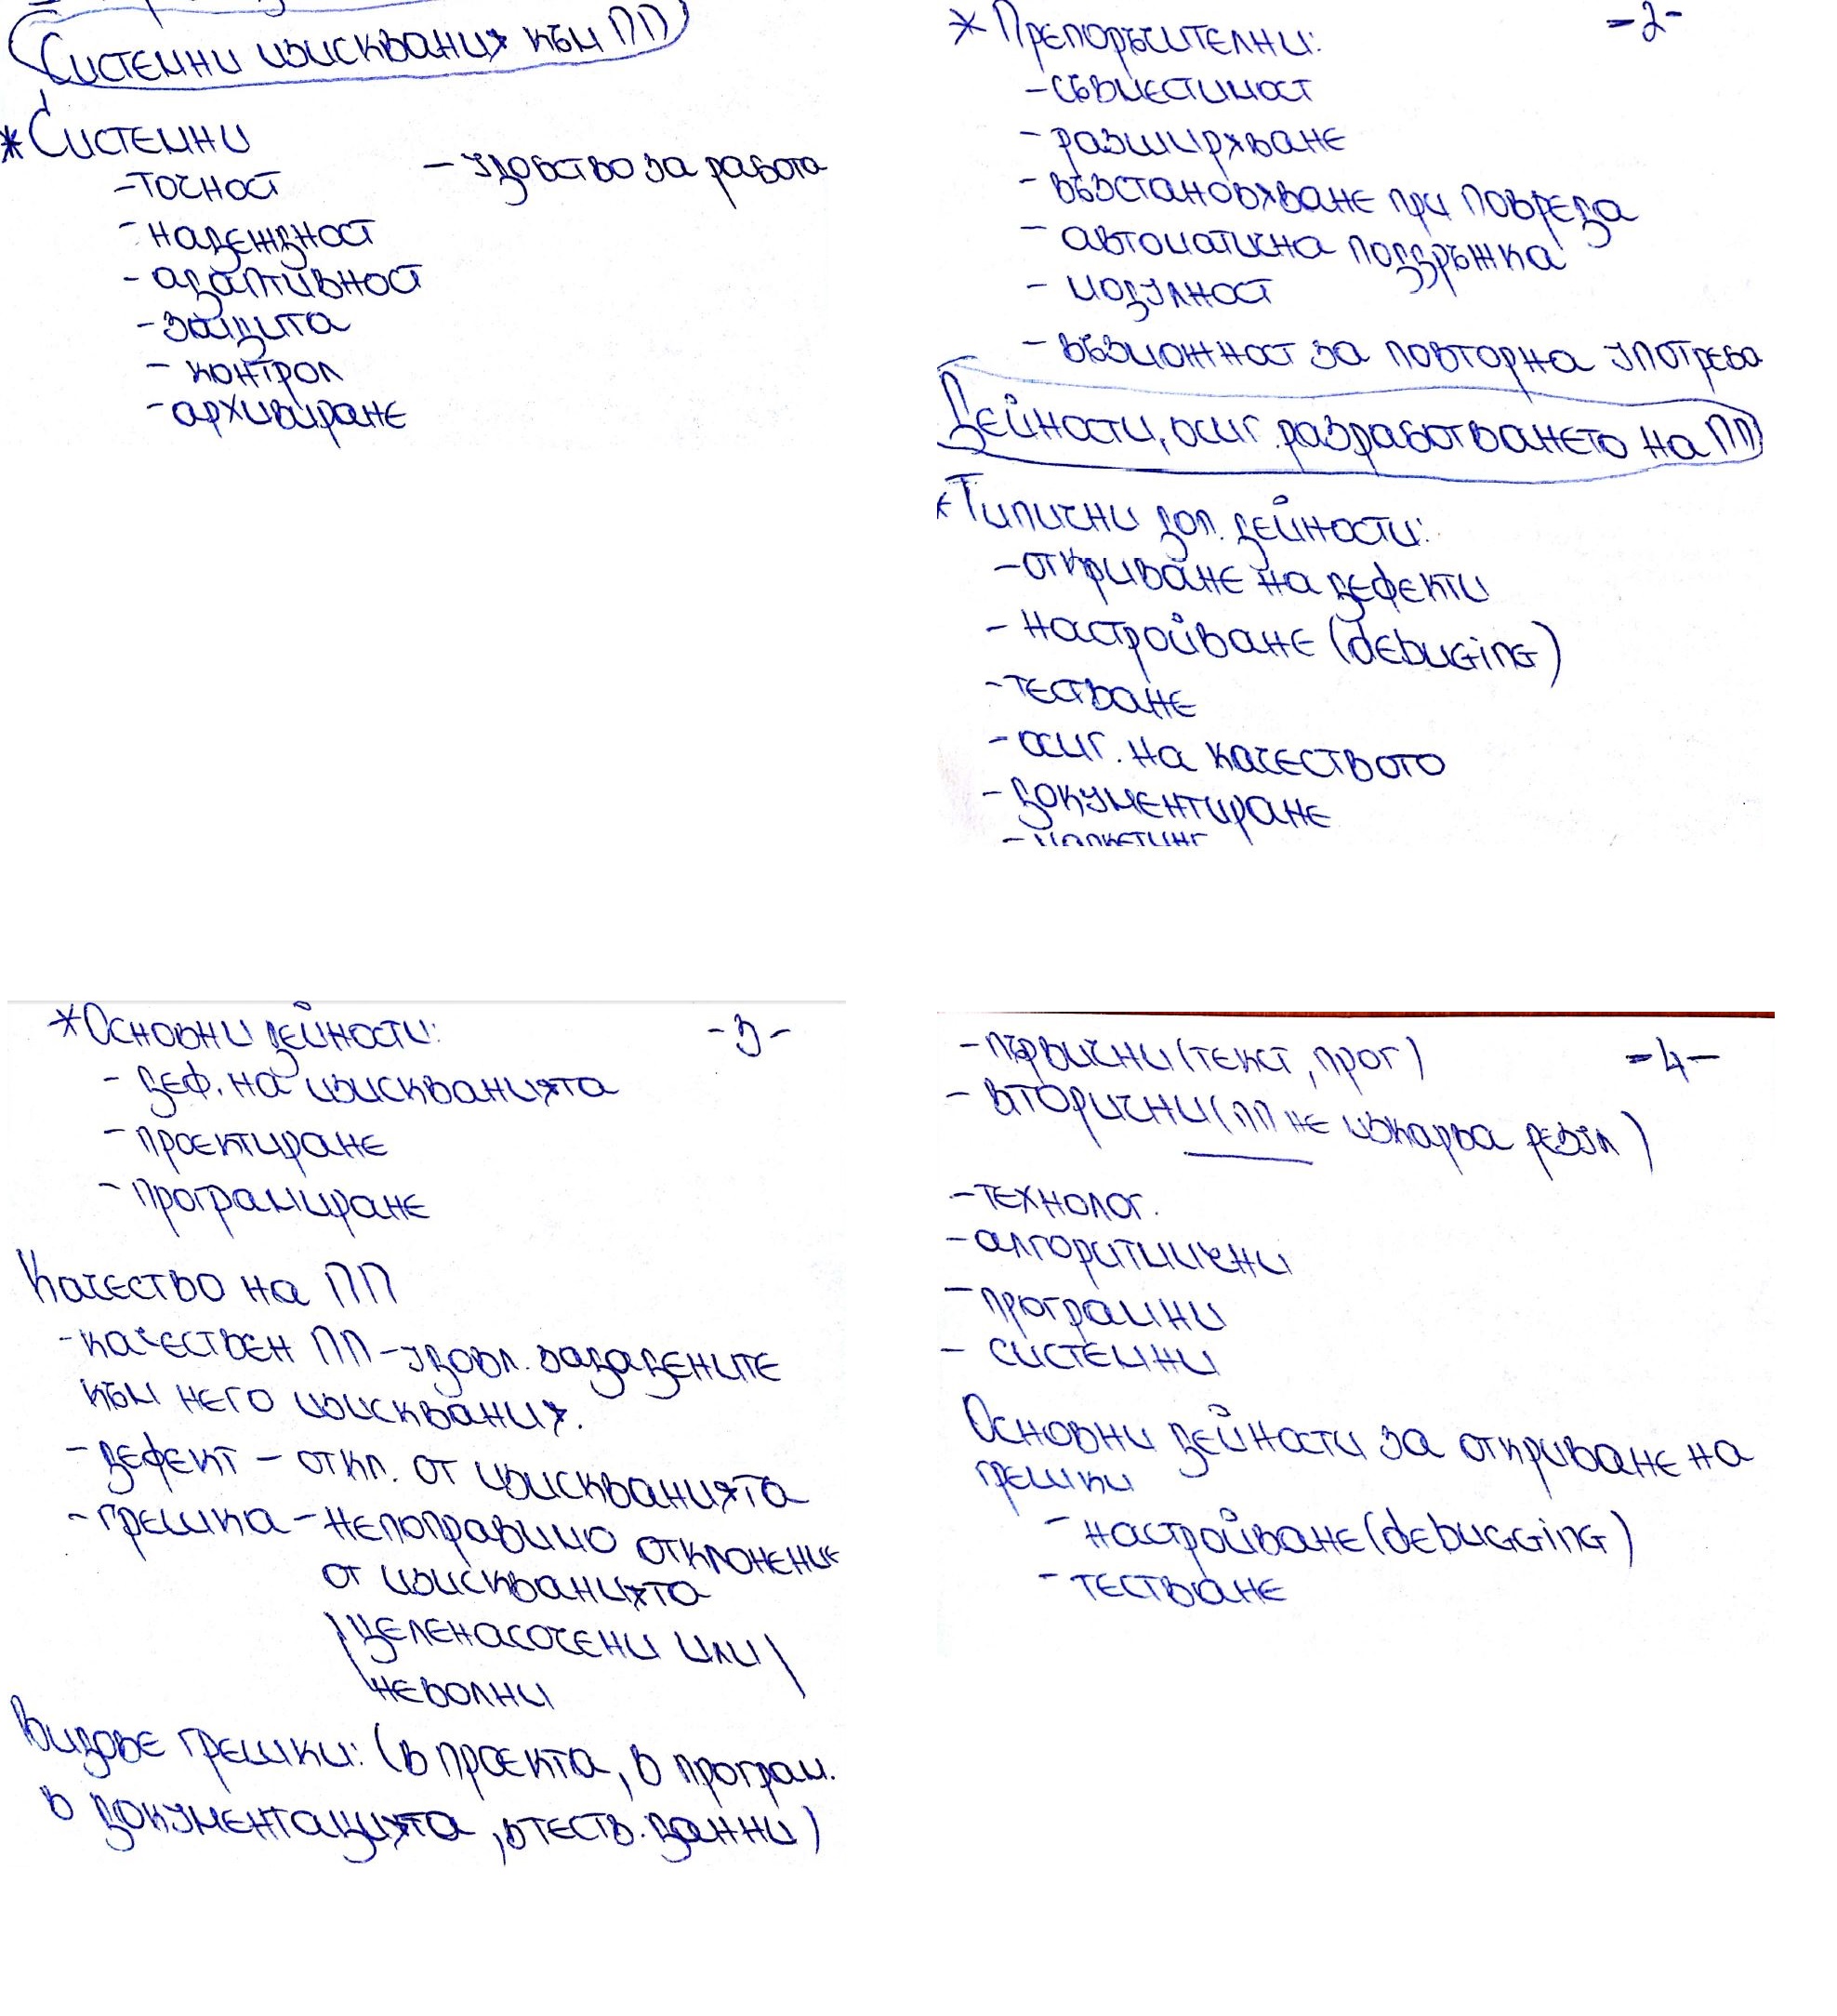 Системни изисквания към ПП
*Системни
-точност
-надеждност
-адаптивност
-защита
- контрол
-архивиране
- удобство за работа
* Препоръчителни:
-2-
-съвместимост
- разширяване
- възстановяване при повреда
- автоматична поддръжка
- модулност
- възможност за повторна употреба
Дейности, осиг. разработването на ПП
*Типични доп. дейности:
-откриване на дефекти
- настройване (debuging)
-тестване
- осиг. на качеството
- документиране
- маркетинг
*Основни дейности:
-3-
- деф. на изискванията
- проектиране
- програмиране
Качество на ПП
-качествен ПП - удовл. зададените
към него изисквания.
- дефект - откл. от изискванията
- грешка - непоправимо отклонение
от изискванията
\целенасочени или\
неволни
Видове грешки: (в проекта, в програм.
в документацията, в теств. данни)
- първични (текст, прог)
-4-
- вторични (ПП не изкарва резул)
- технолог.
- алгоритмични
- програмни
- системни
Основни дейности за откриване на
грешки
- настройване (debugging)
- тестване